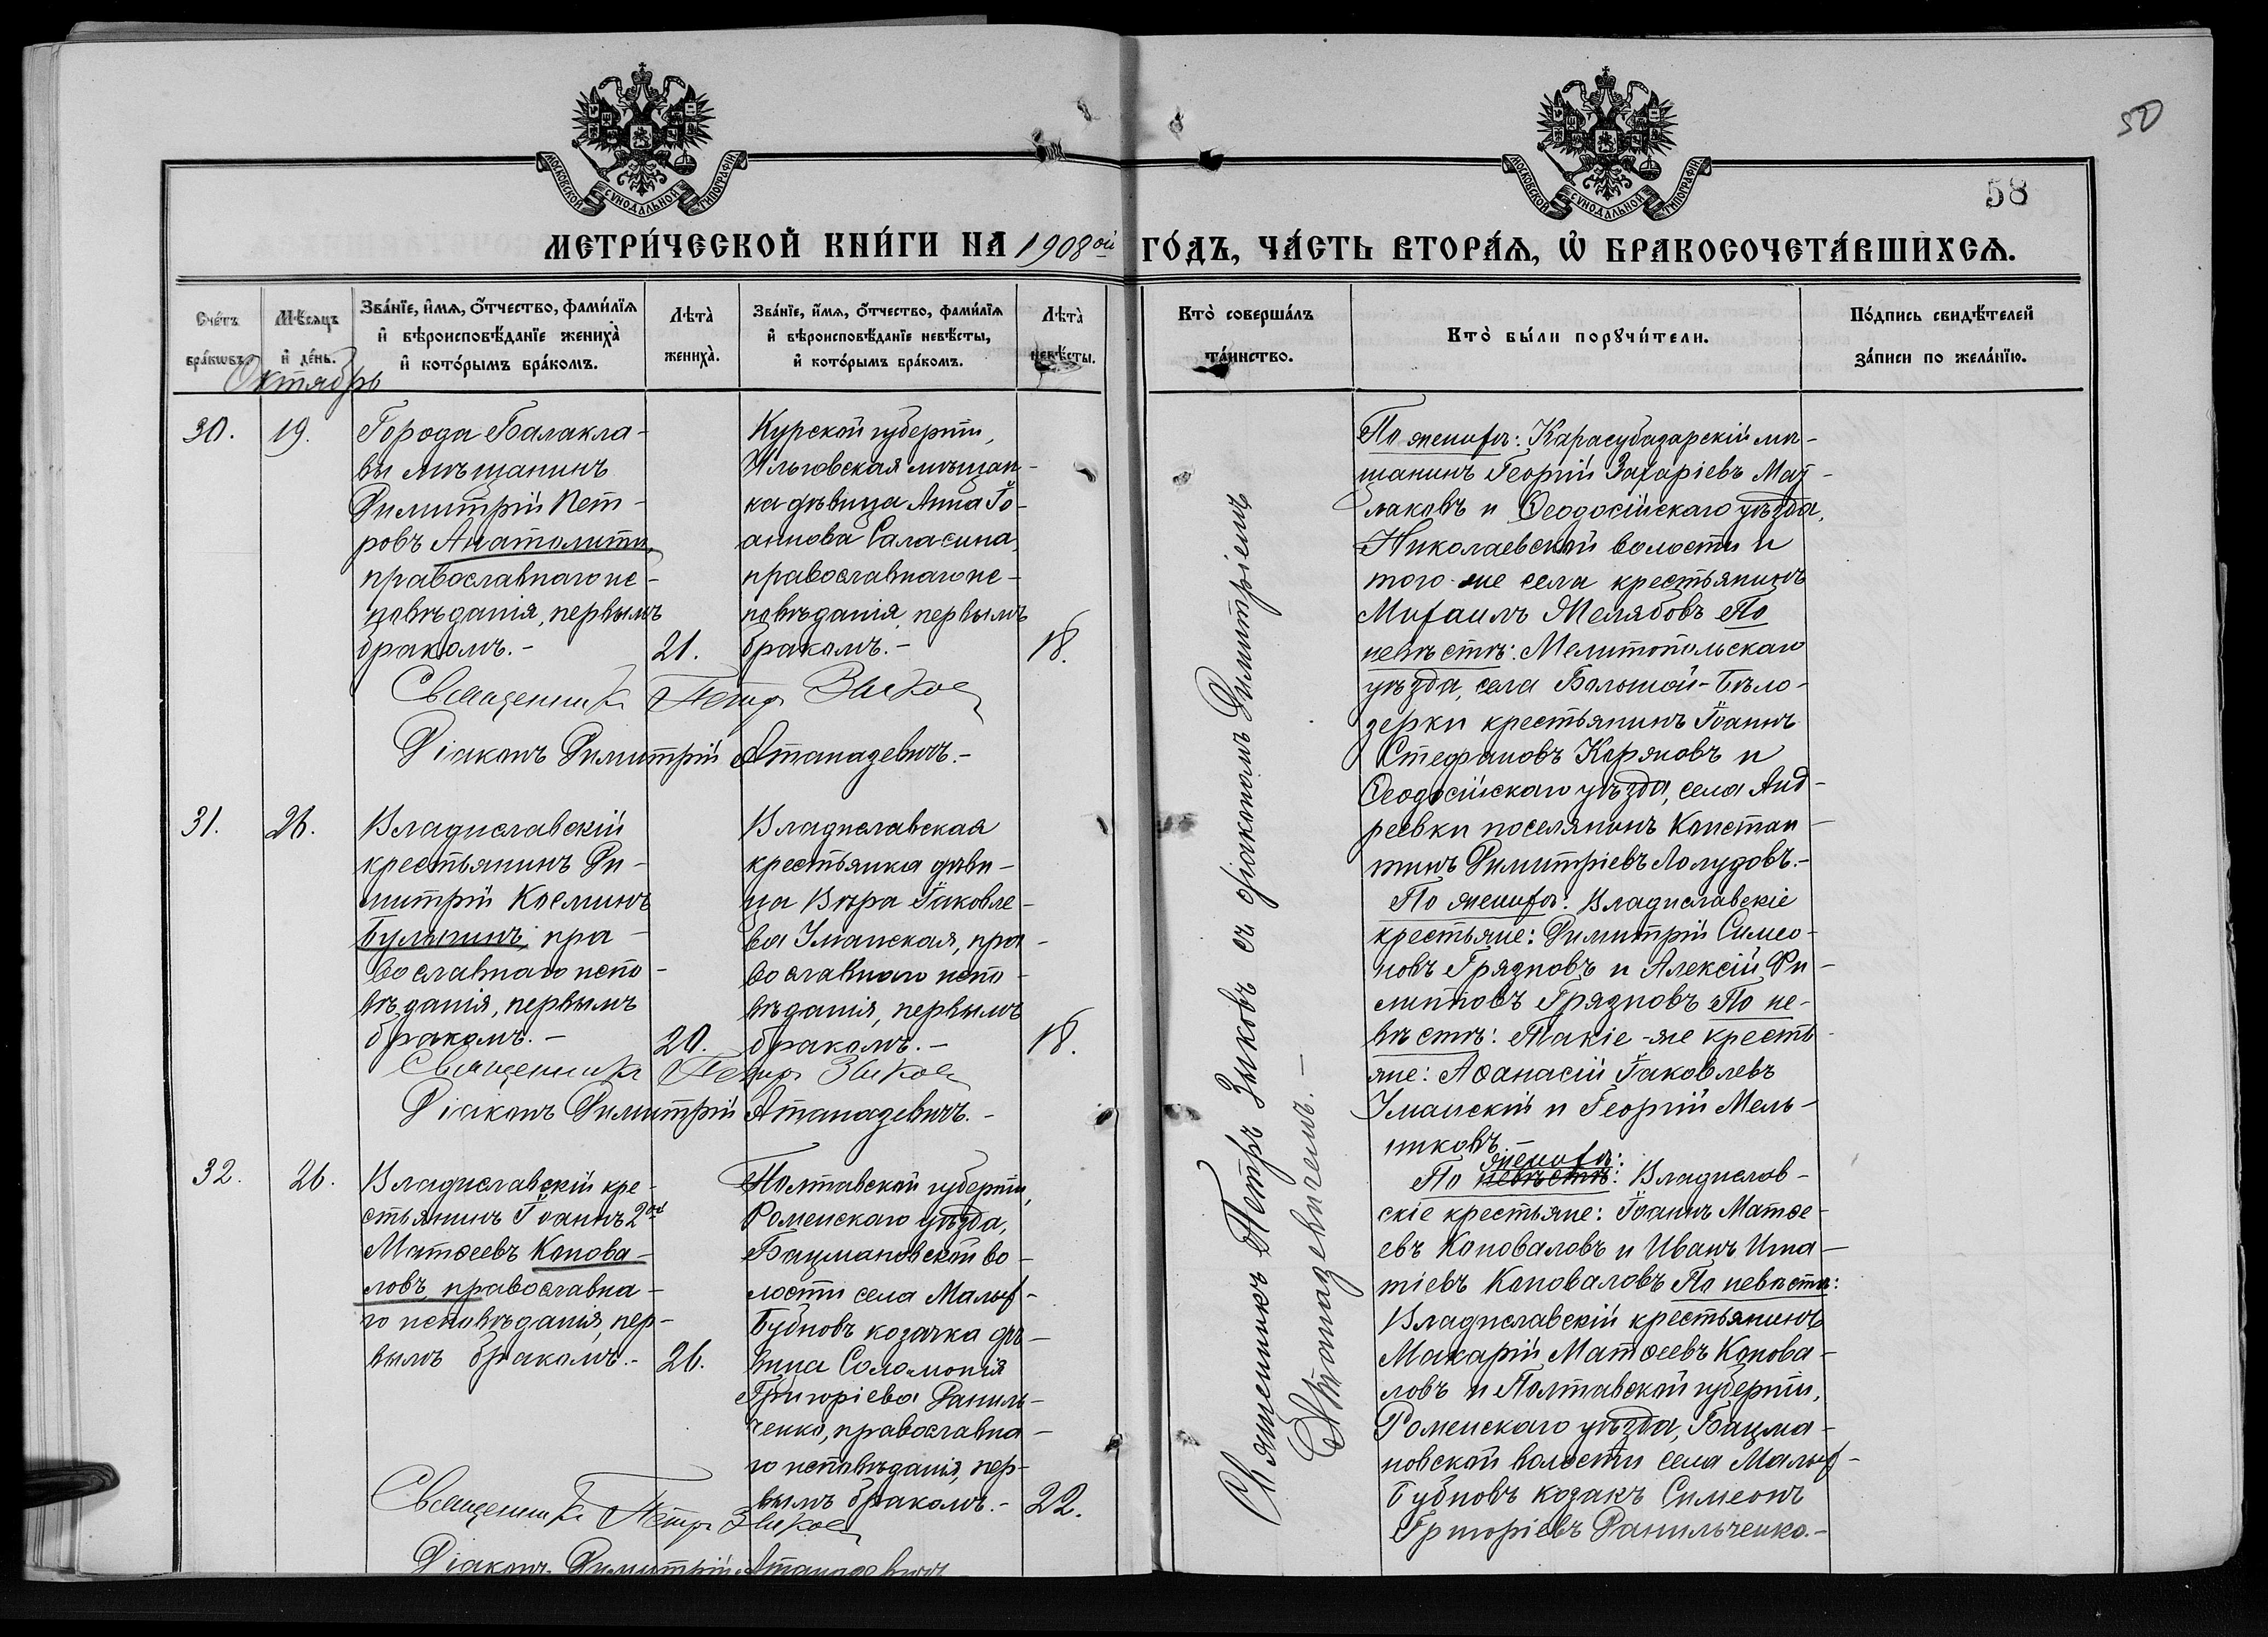 МОСКОВСКОЙ СѴНОДАЛЬНОЙ ТИПОГРАФІИ
МЕТРИ́ЧЕСКОЙ КНИ́ГИ НА 1908ой
Сче́тъ бра́ковъ.
Мѣ́сяцъ и де́нь.
Зва́нїе, и́мя, ѻ҆́тчество, фами́лїя
и҆ вѣроисповѣ́данїе жениха̀
и҆ кото́рымъ бра́комъ.
Лѣта̀
жениха̀.
Зва́нїе, и́мя, ѻ҆́тчество, фами́лїя
и҆ вѣроисповѣ́данїе невѣ́сты,
и҆ кото́рымъ бра́комъ.
Лѣта̀
невѣ́сты.
Октябрь
30.
19.
Города Балакла-
вы мѣщанинъ
Димитрій Пет-
ровъ Анатолити,
православнаго ис-
повѣданія, первымъ
бракомъ.-
21.
Курской губерніи,
Льговская мѣщан-
ка дѣвица Анна Іо-
аннова Саласина,
православнаго ис-
повѣданія, первымъ
бракомъ.-
18.
Священникъ Петръ Зыковъ
Діаконъ Димитрій Атаназевичъ.-
31.
26.
Владиславскій
крестьянинъ Ди-
митрій Косминъ
Булыгинъ, пра-
вославнаго испо-
вѣданія, первымъ
бракомъ.-
20.
Владиславская
крестьянка дѣви-
ца Вѣра Іаковле-
ва Уманская, пра-
вославнаго испо-
вѣданія, первымъ
бракомъ.-
18.
Священникъ Петръ Зыковъ
Діаконъ Димитрій Атаназевичъ.-
32.
26.
Владиславскій кре-
стьянинъ Іоаннъ 2ой
Матѳеевъ Конова-
ловъ, православна-
го исповѣданія, пер-
вымъ бракомъ.-
26.
Полтавской губерніи,
Роменскаго уѣзда,
Бацмановской во-
лости села Малых-
Бубновъ козачка дѣ-
вица Соломонія
Григоріева Даниль-
ченко, православна-
го исповѣданія, пер-
вымъ бракомъ.-
22.
Священникъ Петръ Зыковъ
Діаконъ Димитрій Атаназевичъ
50
58
МОСКОВСКОЙ СѴНОДАЛЬНОЙ ТИПОГРАФІИ
ГО́ДЪ, ЧА́СТЬ ВТОРА́Я, Ѡ҆ БРАКОСОЧЕТА́ВШИХСЯ.
Кто̀ соверша́лъ
та́инство.
Кто̀ бы́ли порꙋчи́тели.
По́дпись свидѣ́телей
за́писи по жела́нїю.
Священникъ Петръ Зыковъ съ діакономъ Димитріемъ
Атаназевичемъ.-
По женихѣ: Карасубазарскій мѣ-
щанинъ Георгій Захаріевъ Маз-
лаковъ и Ѳеодосійскаго уѣзда,
Николаевской волости и
того-же села крестьянинъ
Михаилъ Желябовъ По
невѣстѣ: Мелитопольскаго
уѣзда, села Большой-Бѣло-
зерки крестьянинъ Іоаннъ
Стефановъ Коряковъ и
Ѳеодосійскаго уѣзда, села Анд-
реевки поселянинъ Констан-
тинъ Димитріевъ Лолудовъ.-
По женихѣ: Владиславскіе
крестьяне: Димитрій Симео-
новъ Грязновъ и Алексій Фи-
липповъ Грязновъ По не-
вѣстѣ: Такіе-же кресть-
яне: Аѳанасій Іаковлевъ
Уманскій и Георгій Мель-
никовъ.-
женихѣ:
По невѣстѣ: Владислав-
скіе крестьяне: Іоаннъ Матѳе-
евъ Коноваловъ и Иванъ Игна-
тіевъ Коноваловъ По невѣстѣ:
Владиславскій крестьянинъ
Макарій Матѳеевъ Конова-
ловъ и Полтавской губерніи,
Роменскаго уѣзда, Бацма-
новской волости села Малых-
Бубновъ козакъ Симеонъ
Григоріевъ Данильченко.-